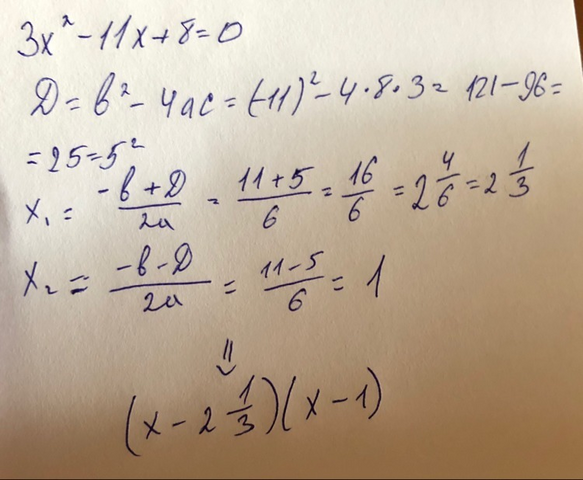 3x² - 11x + 8 = 0
D = b² - 4ac = (-11)² - 4·8·3 = 121 - 96 =
= 25 = 5²
x₁ = (-b + D)/2a = (11 + 5)/6 = 16/6 = 2 4/6 = 2 1/3
x₂ = (-b - D)/2a = (11 - 5)/6 = 1
⇓
(x - 2 1/3)(x - 1)